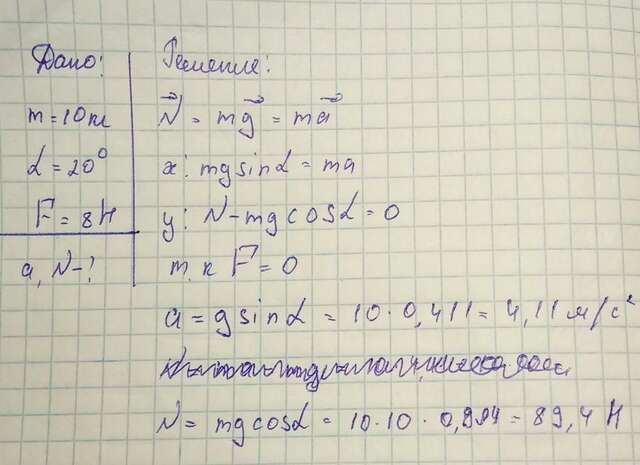 Дано:
m = 10 кг
α = 20°
F = 8 Н
a, N - ?
Решение:
N⃗ = mg⃗ = ma⃗
x: mg sinα = ma
y: N - mg cosα = 0
т.к F = 0
a = g sinα = 10 · 0,411 = 4,11 м/с²
N = mg cosα = 10 · 10 · 0,894 = 89,4 Н